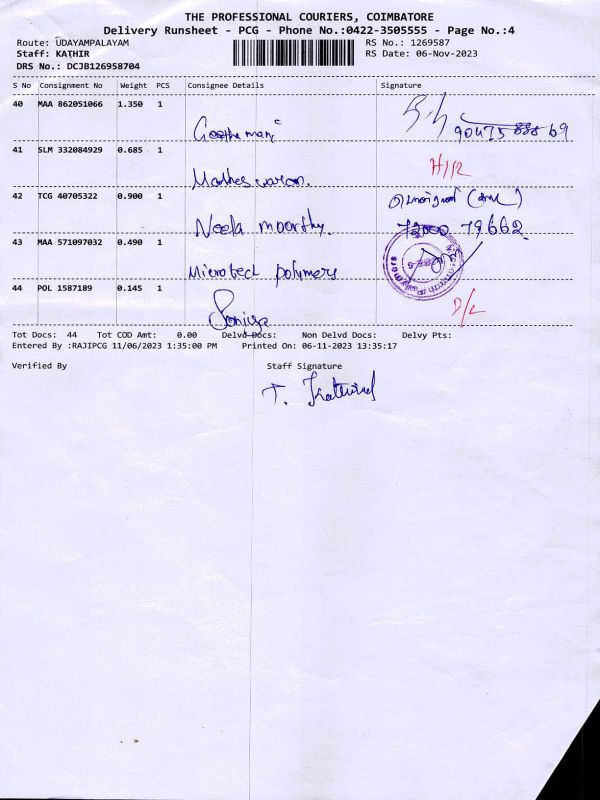 THE PROFESSIONAL COURIERS, COIMBATORE
Delivery Runsheet - PCG - Phone No.:0422-3505555 - Page No.:4
Route: UDAYAMPALAYAM RS No.: 1269587
Staff: KATHIR RS Date: 06-Nov-2023
DRS No.: DCJB126958704
S No Consignment No Weight PCS Consignee Details Signature
40 MAA 862051066 1.350 1
Geethamani
41 SLM 332084929 0.685 1
H/12
Madheswaran.
42 TCG 40705322 0.900 1
Neela moorthy. 79662
43 MAA 571097032 0.490 1
Microtech polymers
44 POL 1587189 0.145 1
D/L
Soniya
Tot Docs: 44 Tot COD Amt: 0.00 Delvd Docs: Non Delvd Docs: Delvy Pts:
Entered By :RAJIPCG 11/06/2023 1:35:00 PM Printed On: 06-11-2023 13:35:17
Verified By Staff Signature
T.